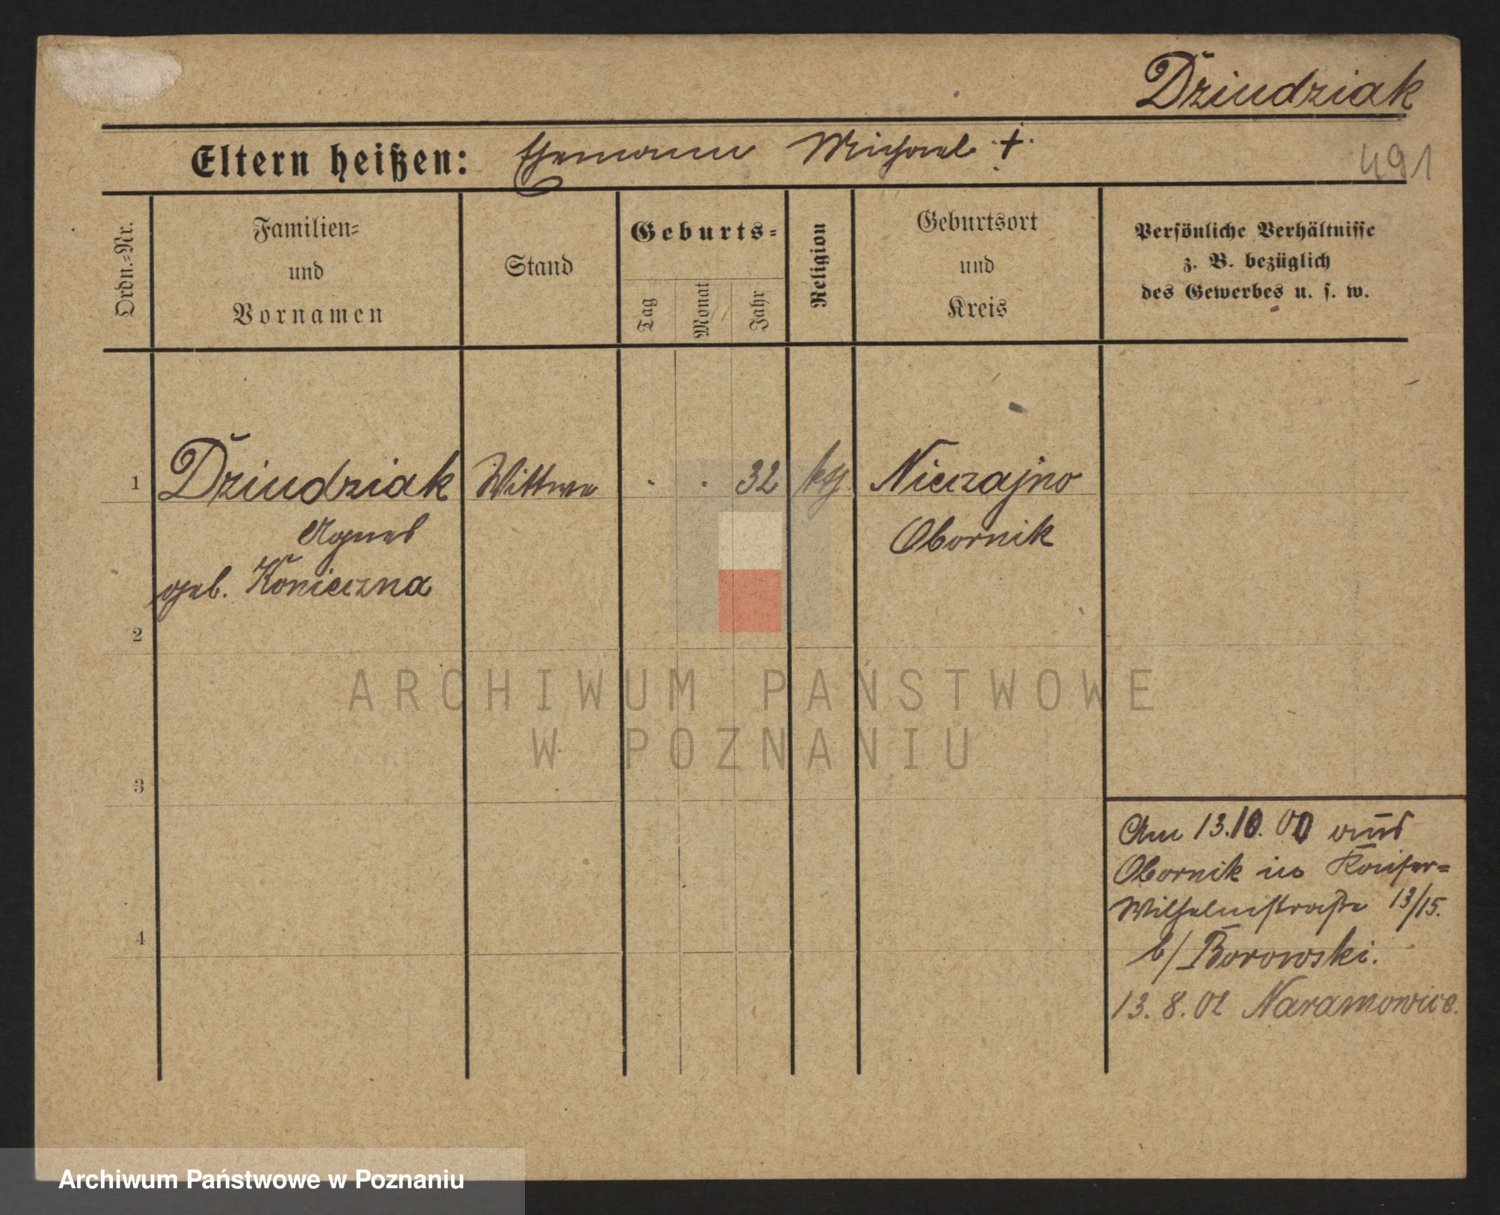 Dziudziak
Eltern heißen: Ehemann Michael +
491
Ordn.-Nr.
Familien-
und
Vornamen
Stand
Geburts-
Tag
Monat
Jahr
Religion
Geburtsort
und
Kreis
Persönliche Verhältnisse
z. B. bezüglich
des Gewerbes u. s. w.
1 Dziudziak Wittwe . . 32 kg. Nieczajno
Agnes Obornik
geb. Konieczna
2
3
4
Am 13.10.00 aus
Obornik in Kaiser-
Wilhelmstraße 13/15.
b/ Borowski.
13.8.01 Naramowice.
ARCHIWUM PAŃSTWOWE
W POZNANIU
Archiwum Państwowe w Poznaniu